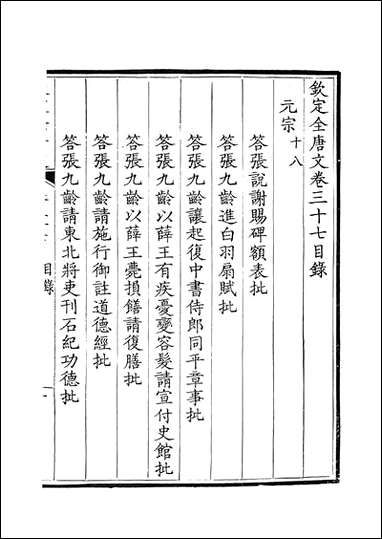 欽定全唐文卷三十七目錄
元宗十八
答張說謝賜碑額表批
答張九齡進白羽扇賦批
答張九齡讓起復中書侍郎同平章事批
答張九齡以薛王有疾憂變容髮請宣付史館批
答張九齡以薛王薨損饍請復膳批
答張九齡請施行御註道德經批
答張九齡請東北將吏刊石紀功德批
目錄
一